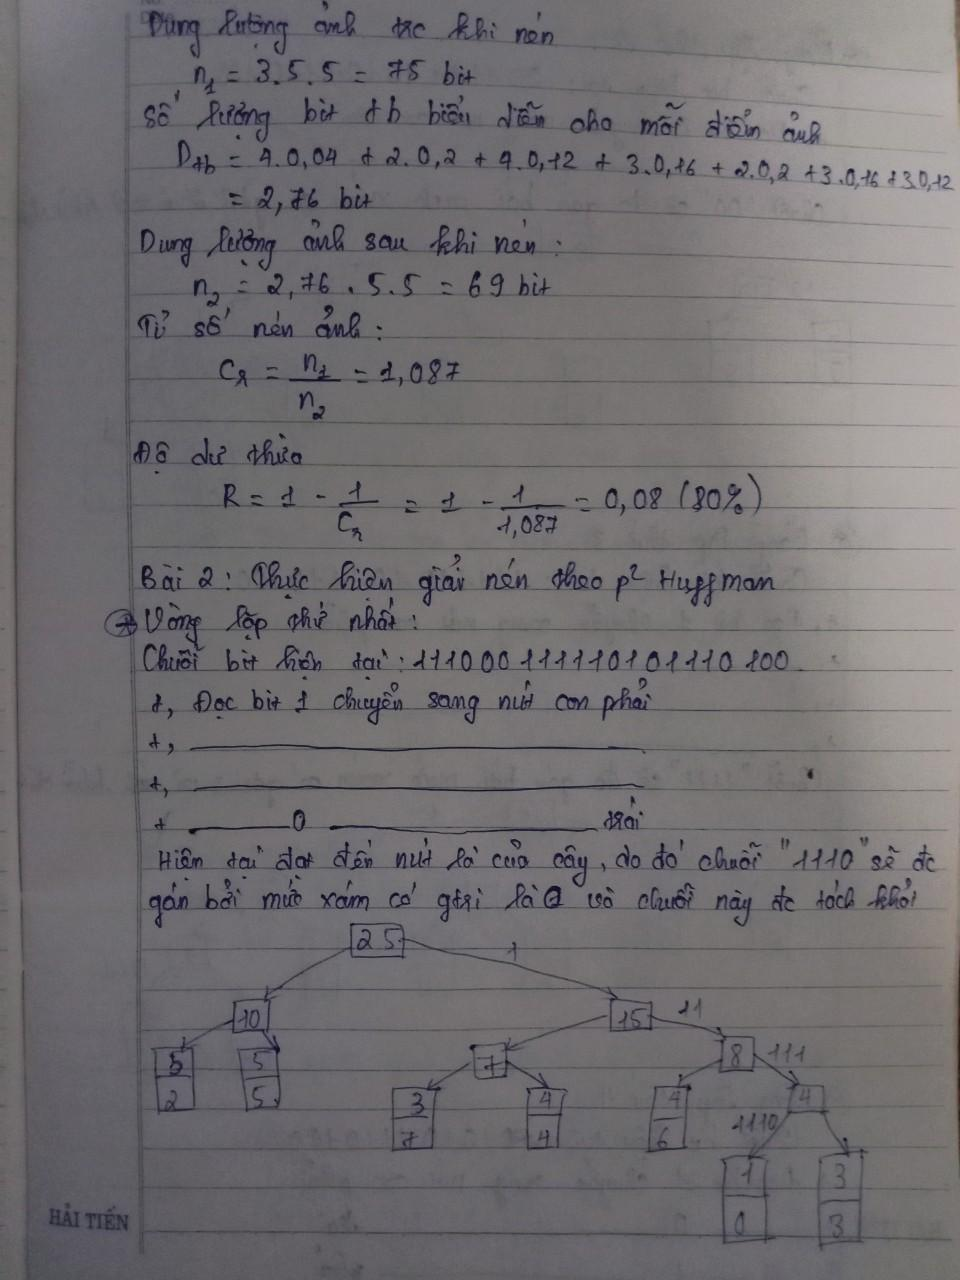 Dung lượng ảnh trc khi nén
n₁ = 3.5.5 = 75 bit
Số lượng bit tb biểu diễn cho mỗi điểm ảnh
D_tb = 4.0,04 + 2.0,2 + 4.0,12 + 3.0,16 + 2.0,2 + 3.0,16 + 3.0,12
= 2,76 bit
Dung lượng ảnh sau khi nén :
n₂ = 2,76 . 5.5 = 69 bit
Tỉ số nén ảnh :
Cr = n₁/n₂ = 1,087
Độ dư thừa
R = 1 - 1/Cr = 1 - 1/1,087 = 0,08 (80%)
Bài 2 : Thực hiện giải nén theo p² Huffman
Vòng lặp thứ nhất :
Chuỗi bit hiện tại : 111000111110101110100
+, Đọc bit 1 chuyển sang nút con phải
+,
+,
+ 0 trái
Hiện tại đạt đến nút lá của cây, do đó chuỗi "1110" sẽ đc
gán bởi mức xám có gtrị là 0 và chuỗi này đc tách khỏi
25 1
10 15 11
5 5 7 8 111
2 5 3 4 4 4
7 4 6 1110
1 3
0 3
HẢI TIẾN